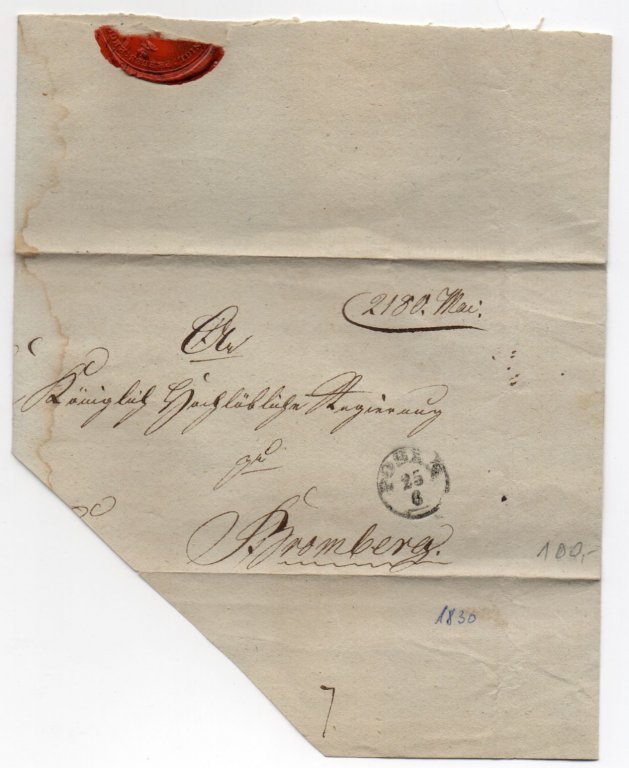 2180. Mai.
An
Königlich Hochlöbliche Regierung
zu
POSEN
25
6
Bromberg.
100,-
1830
7